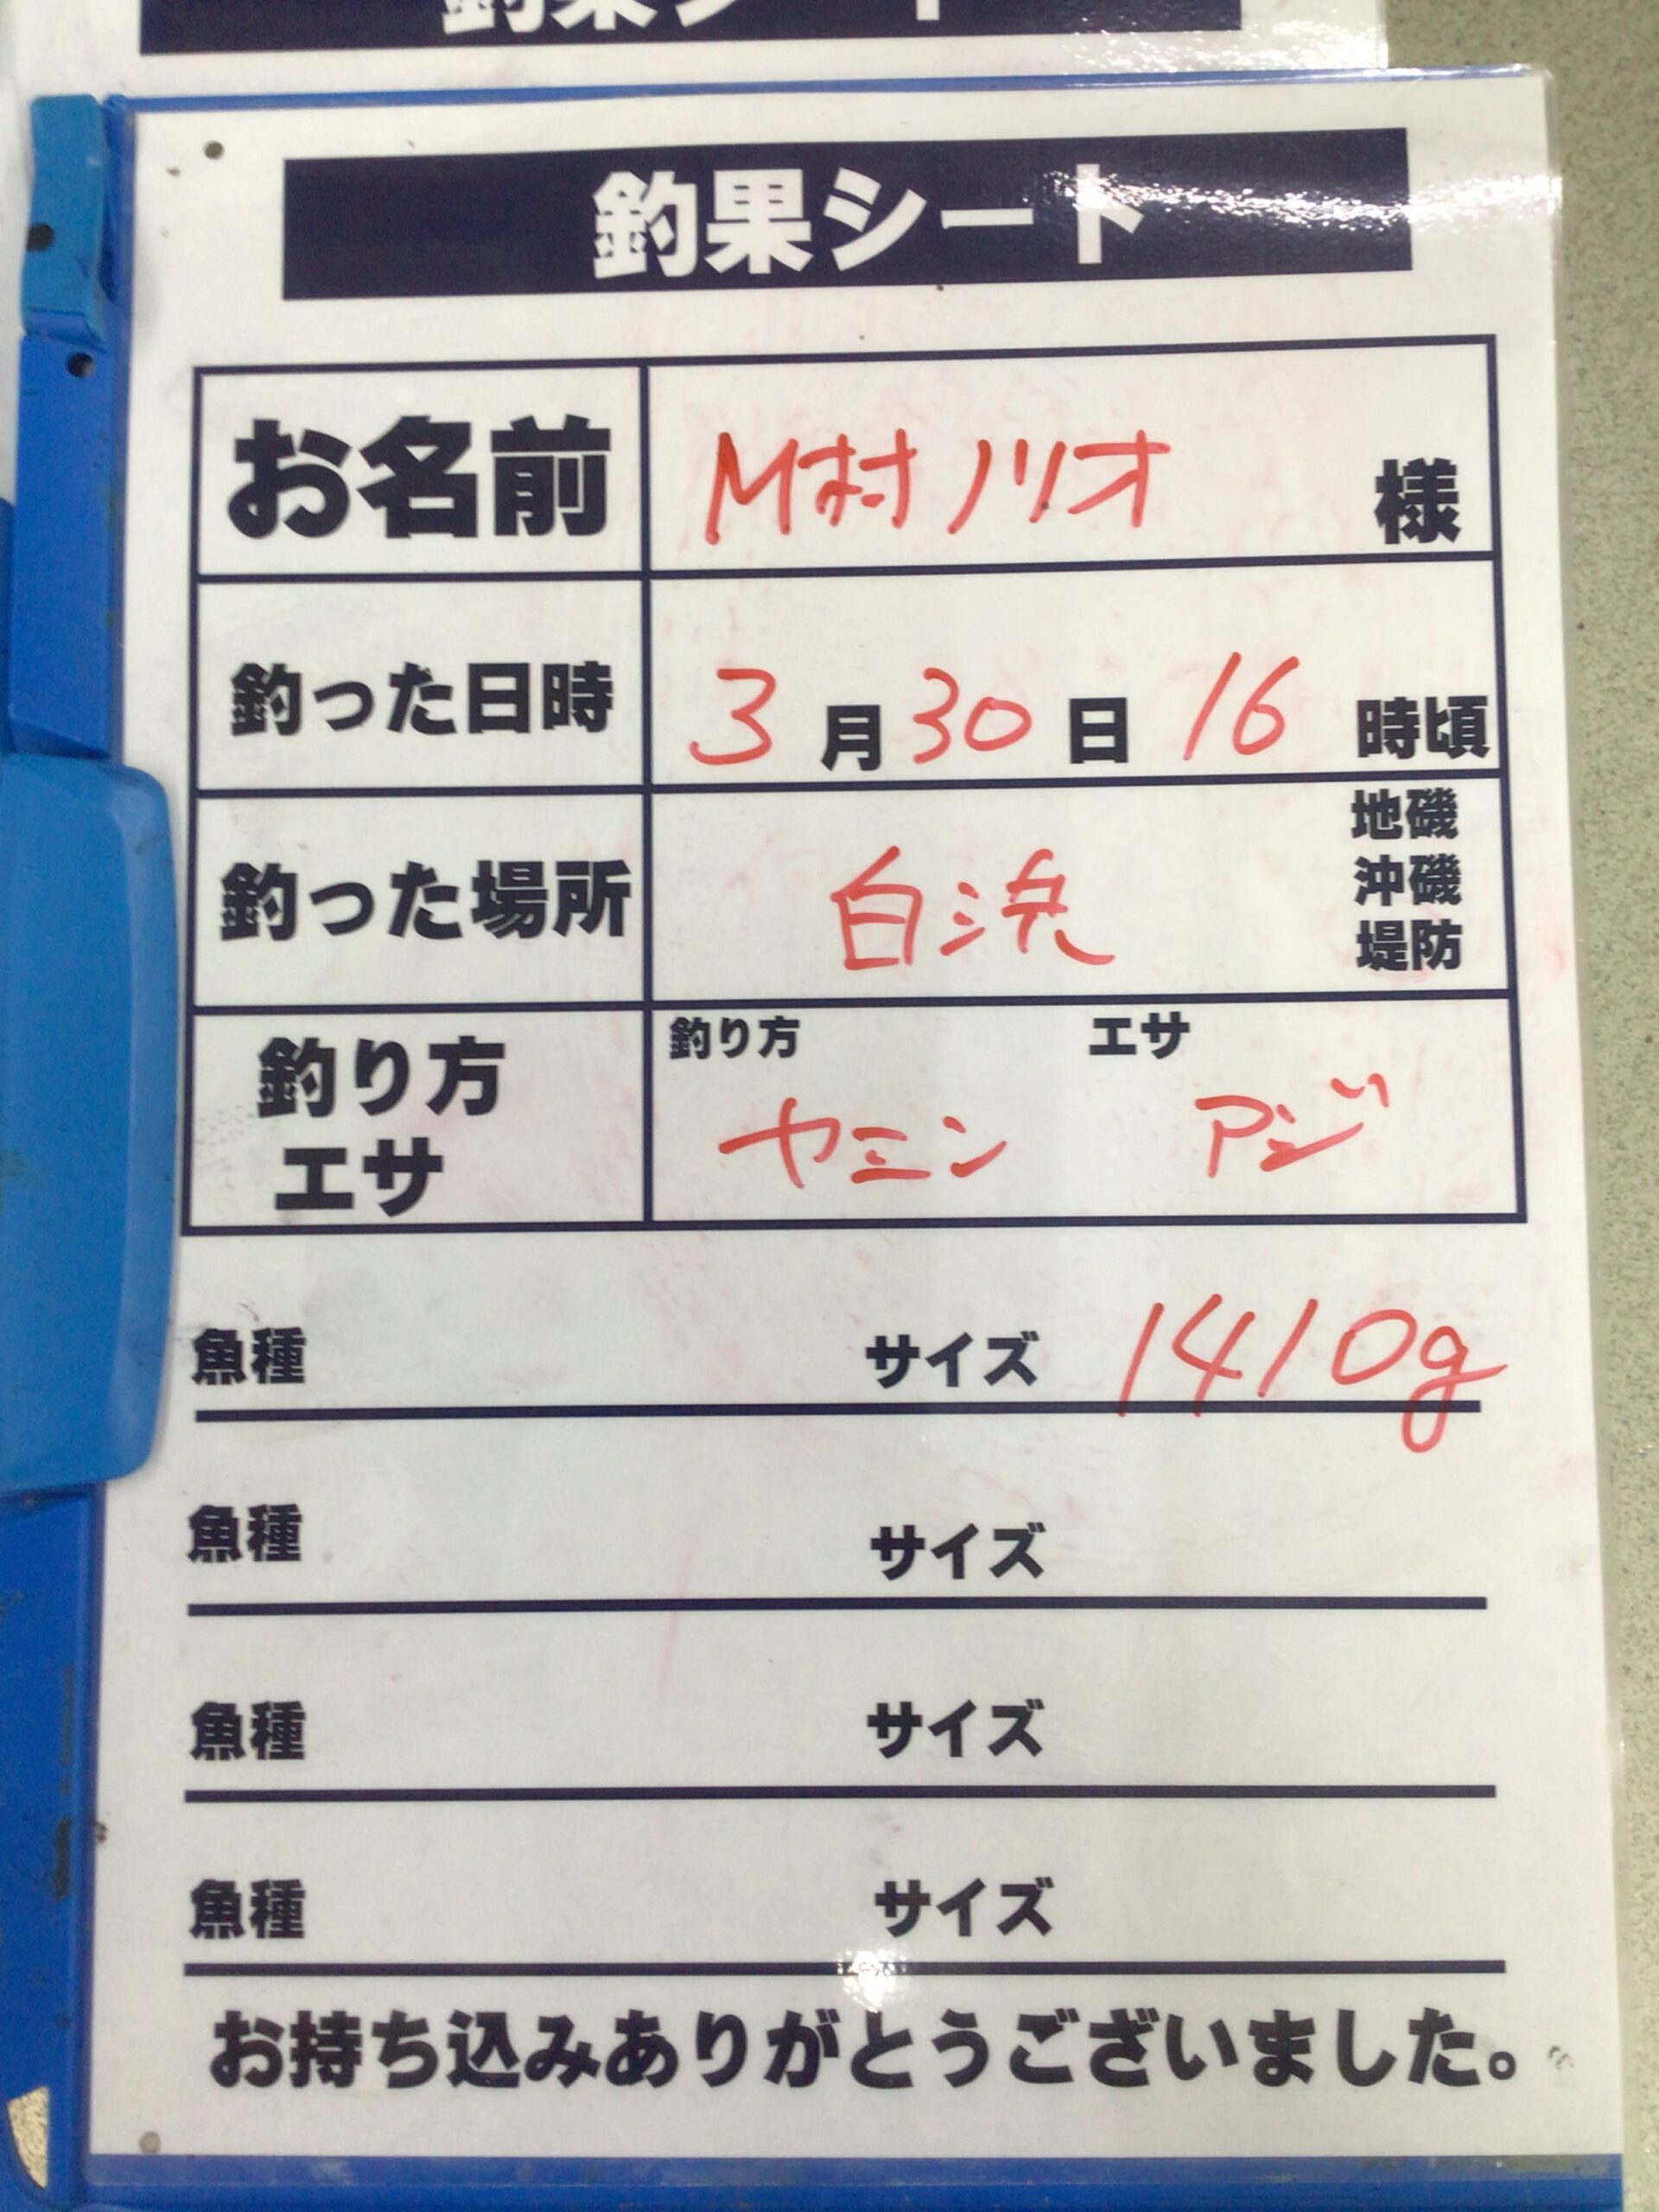 釣果シート
釣果シート
お名前 M村ノリオ 様
釣った日時 3月30日16時頃
釣った場所 白浜 地磯
沖磯
堤防
釣り方 エサ
釣り方 ヤエン アジ
エサ
魚種 サイズ 1410g
魚種 サイズ
魚種 サイズ
魚種 サイズ
お持ち込みありがとうございました。